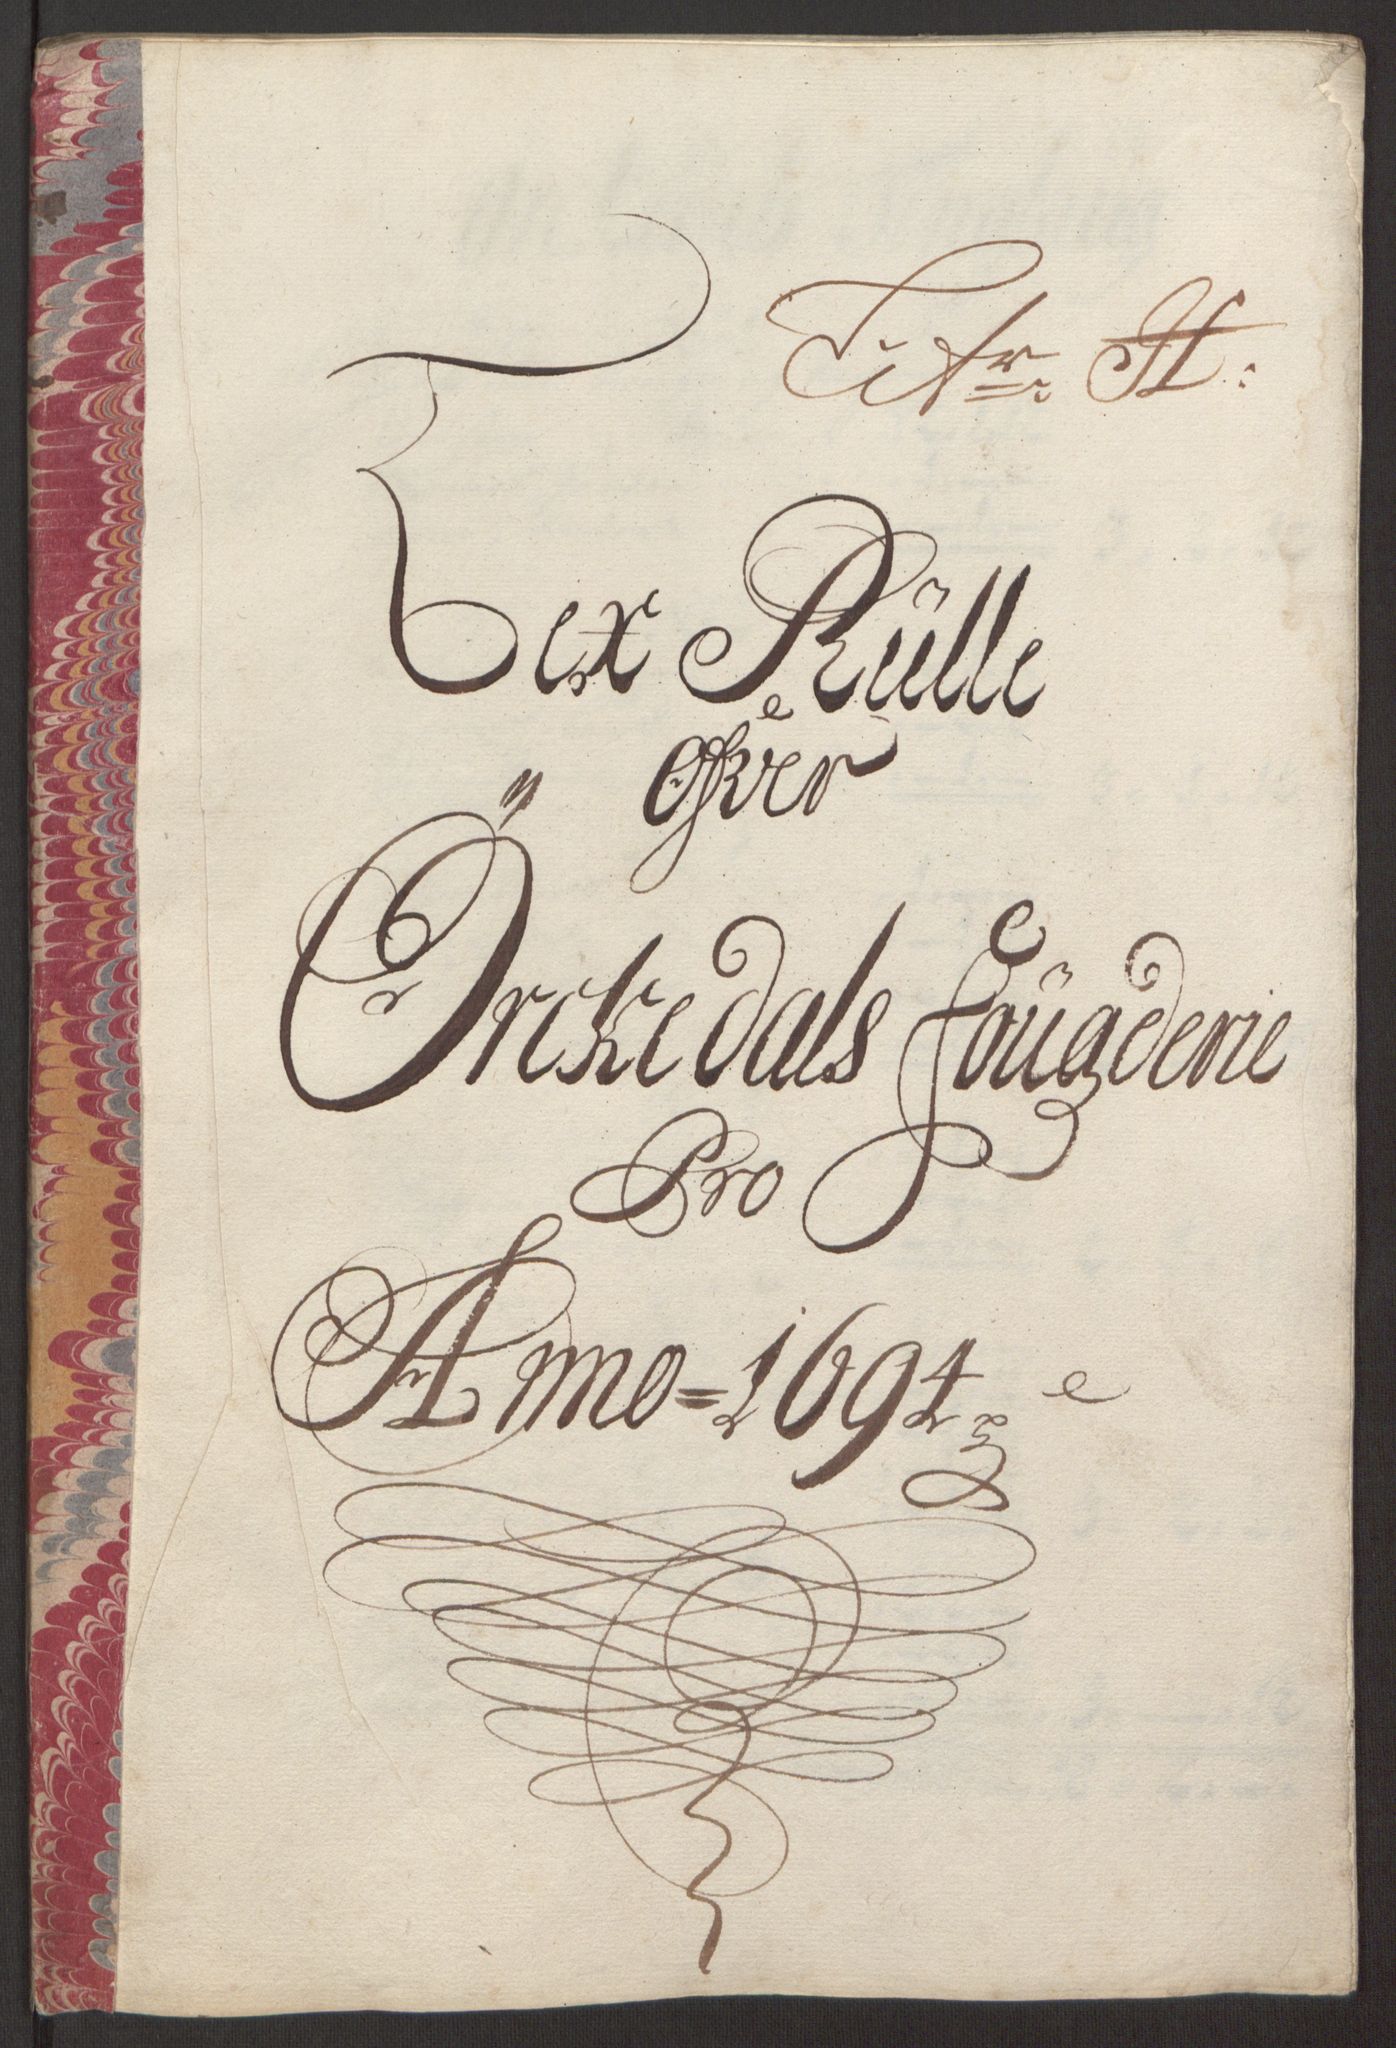 Litr: H:
Lex Rülle
ofver
Örckedals fougderie
Pro
Anno = 1694